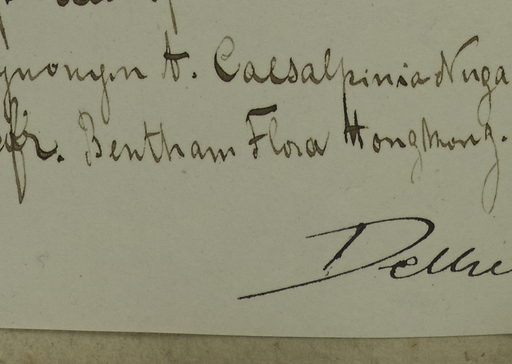 ynonym A. Caesalpinia Nuga
cfr. Bentham Flora Hongkong.